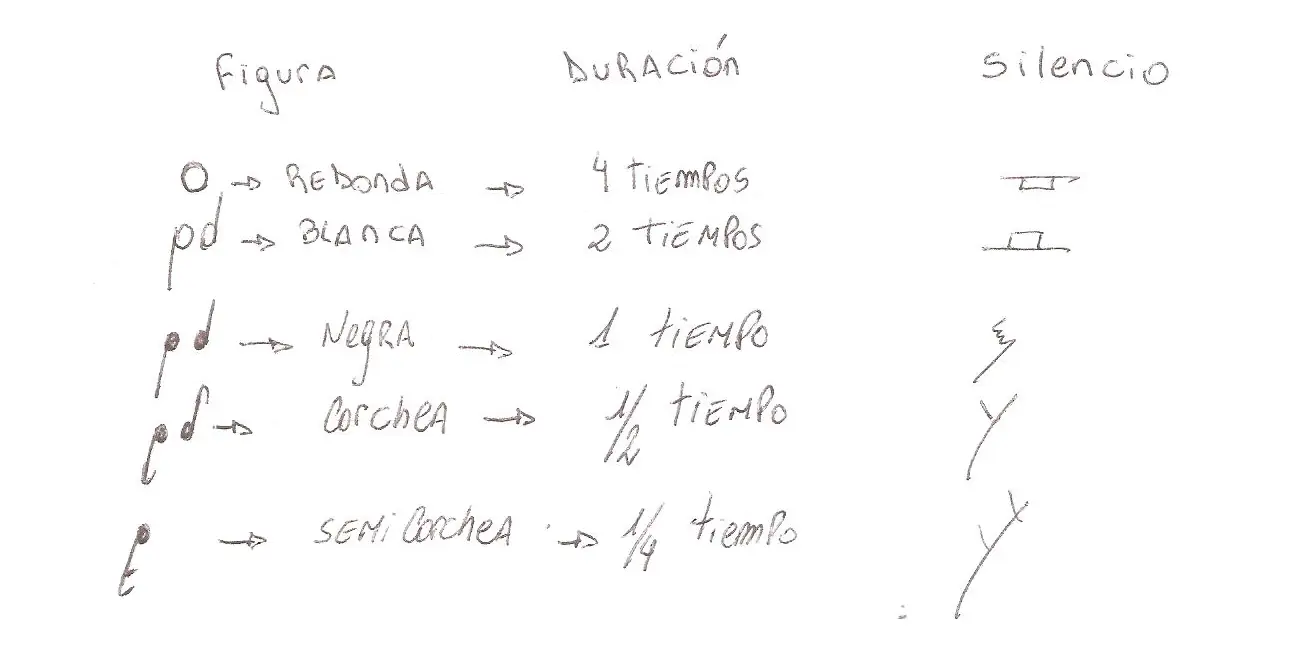 Figura DURACIÓN Silencio
→ REDONDA → 4 TIEMPOS
→ BLANCA → 2 TIEMPOS
→ NEGRA → 1 TIEMPO
→ CorcheA → 1/2 TIEMPO
→ SEMICorcheA → 1/4 tiempo